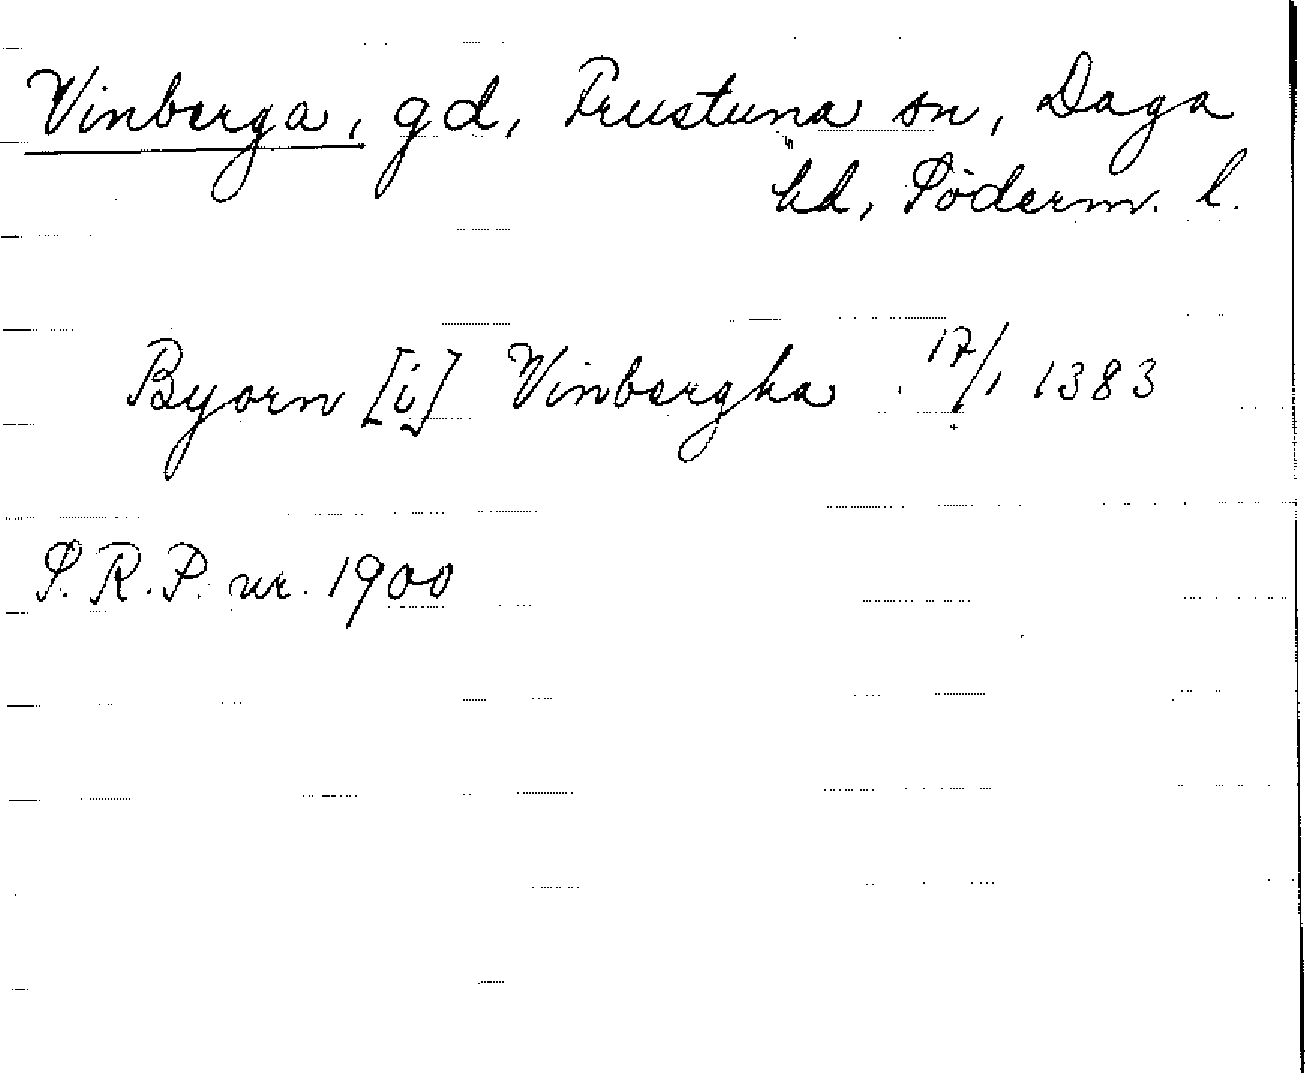 Vinberga, gd, Frustuna sn, Daga
hd, Söderm. l.
Byorn [i] Vinbergha 17/1 1383
S.R.P. nr. 1900